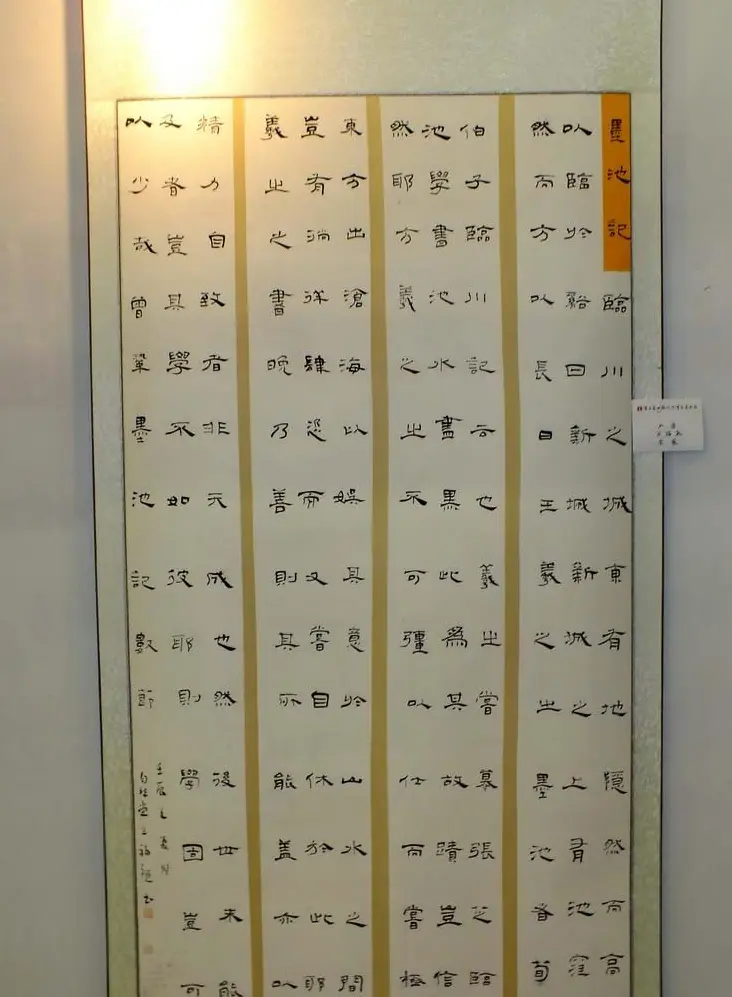 墨池記臨川之城東有地隱然而高
以臨於谿曰新城新城之上有池窪
然而方以長曰王羲之之墨池者荀
伯子臨川記云也羲之嘗慕張芝臨
池學書池水盡黑此爲其故蹟豈信
然耶方羲之之不可彊以仕而嘗極
東方出滄海以娛其意於山水之間
豈有徜徉肆恣而又嘗自休於此耶
羲之之書晚乃善則其所能蓋亦以
精力自致者非天成也然後世未能
及者豈其學不如彼耶則學固豈可
以少哉曾鞏墨池記數節
壬辰之夏月